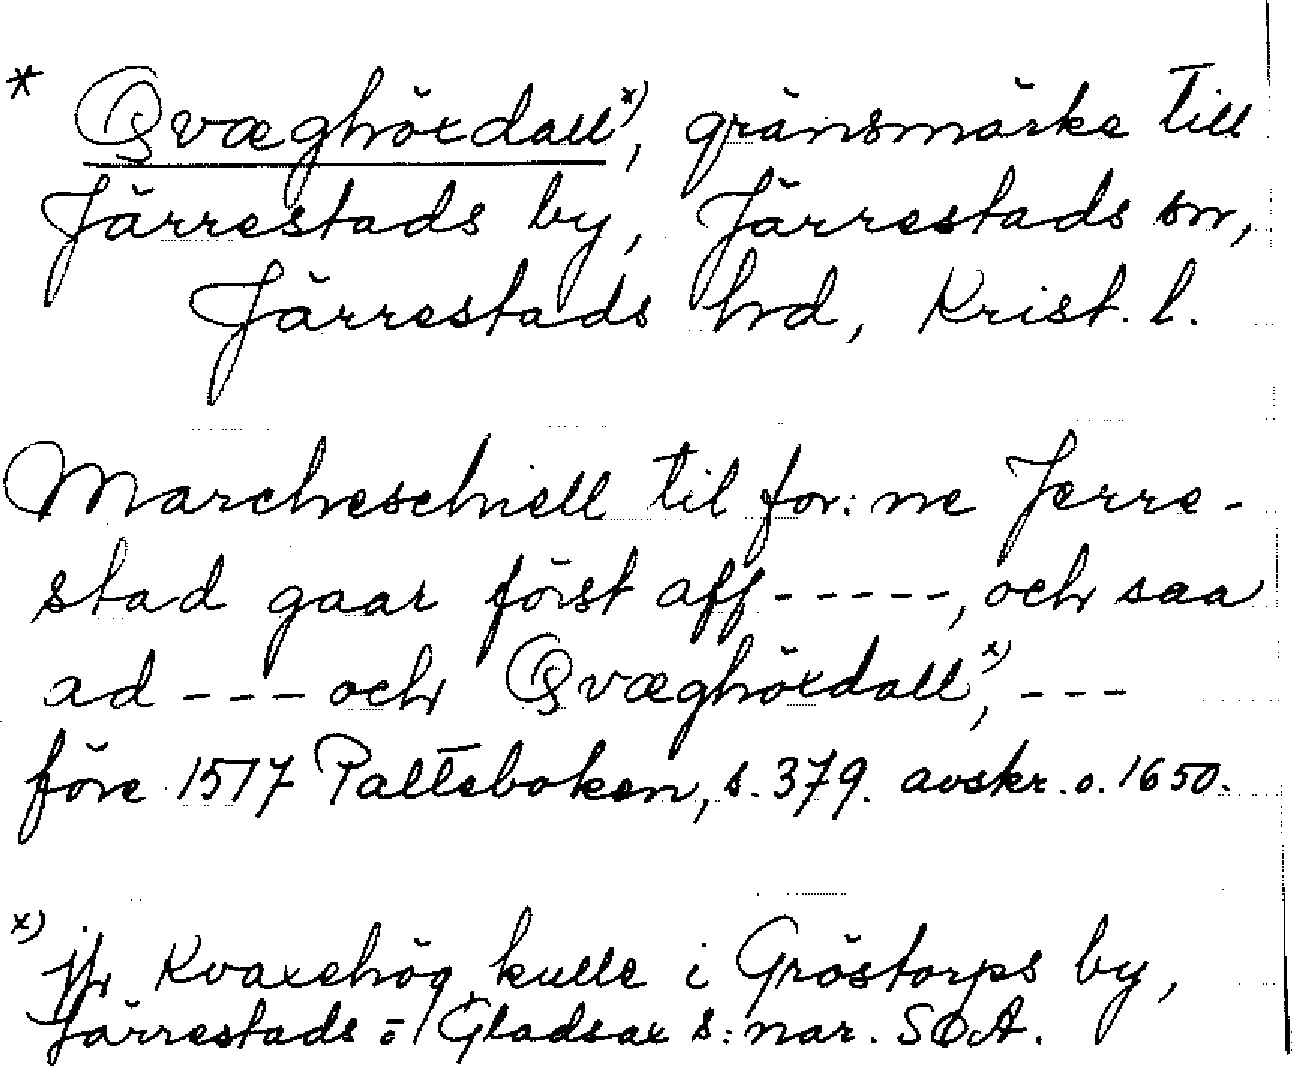 * Qvæghöxdall x), gränsmärke till
Järrestads by, Järrestads sn,
Järrestads hd, Krist. l.
Marcheschiell til for: ne Jerre-
stad gaar först aff -----, och saa
ad --- och Qvæghöxdall x), ---
före 1517 Palteboken, s. 379. avskr. o. 1650.
x) jfr Kvaxehög, kulle i Gröstorps by,
Järrestads o Gladsax s:nar. SOA.